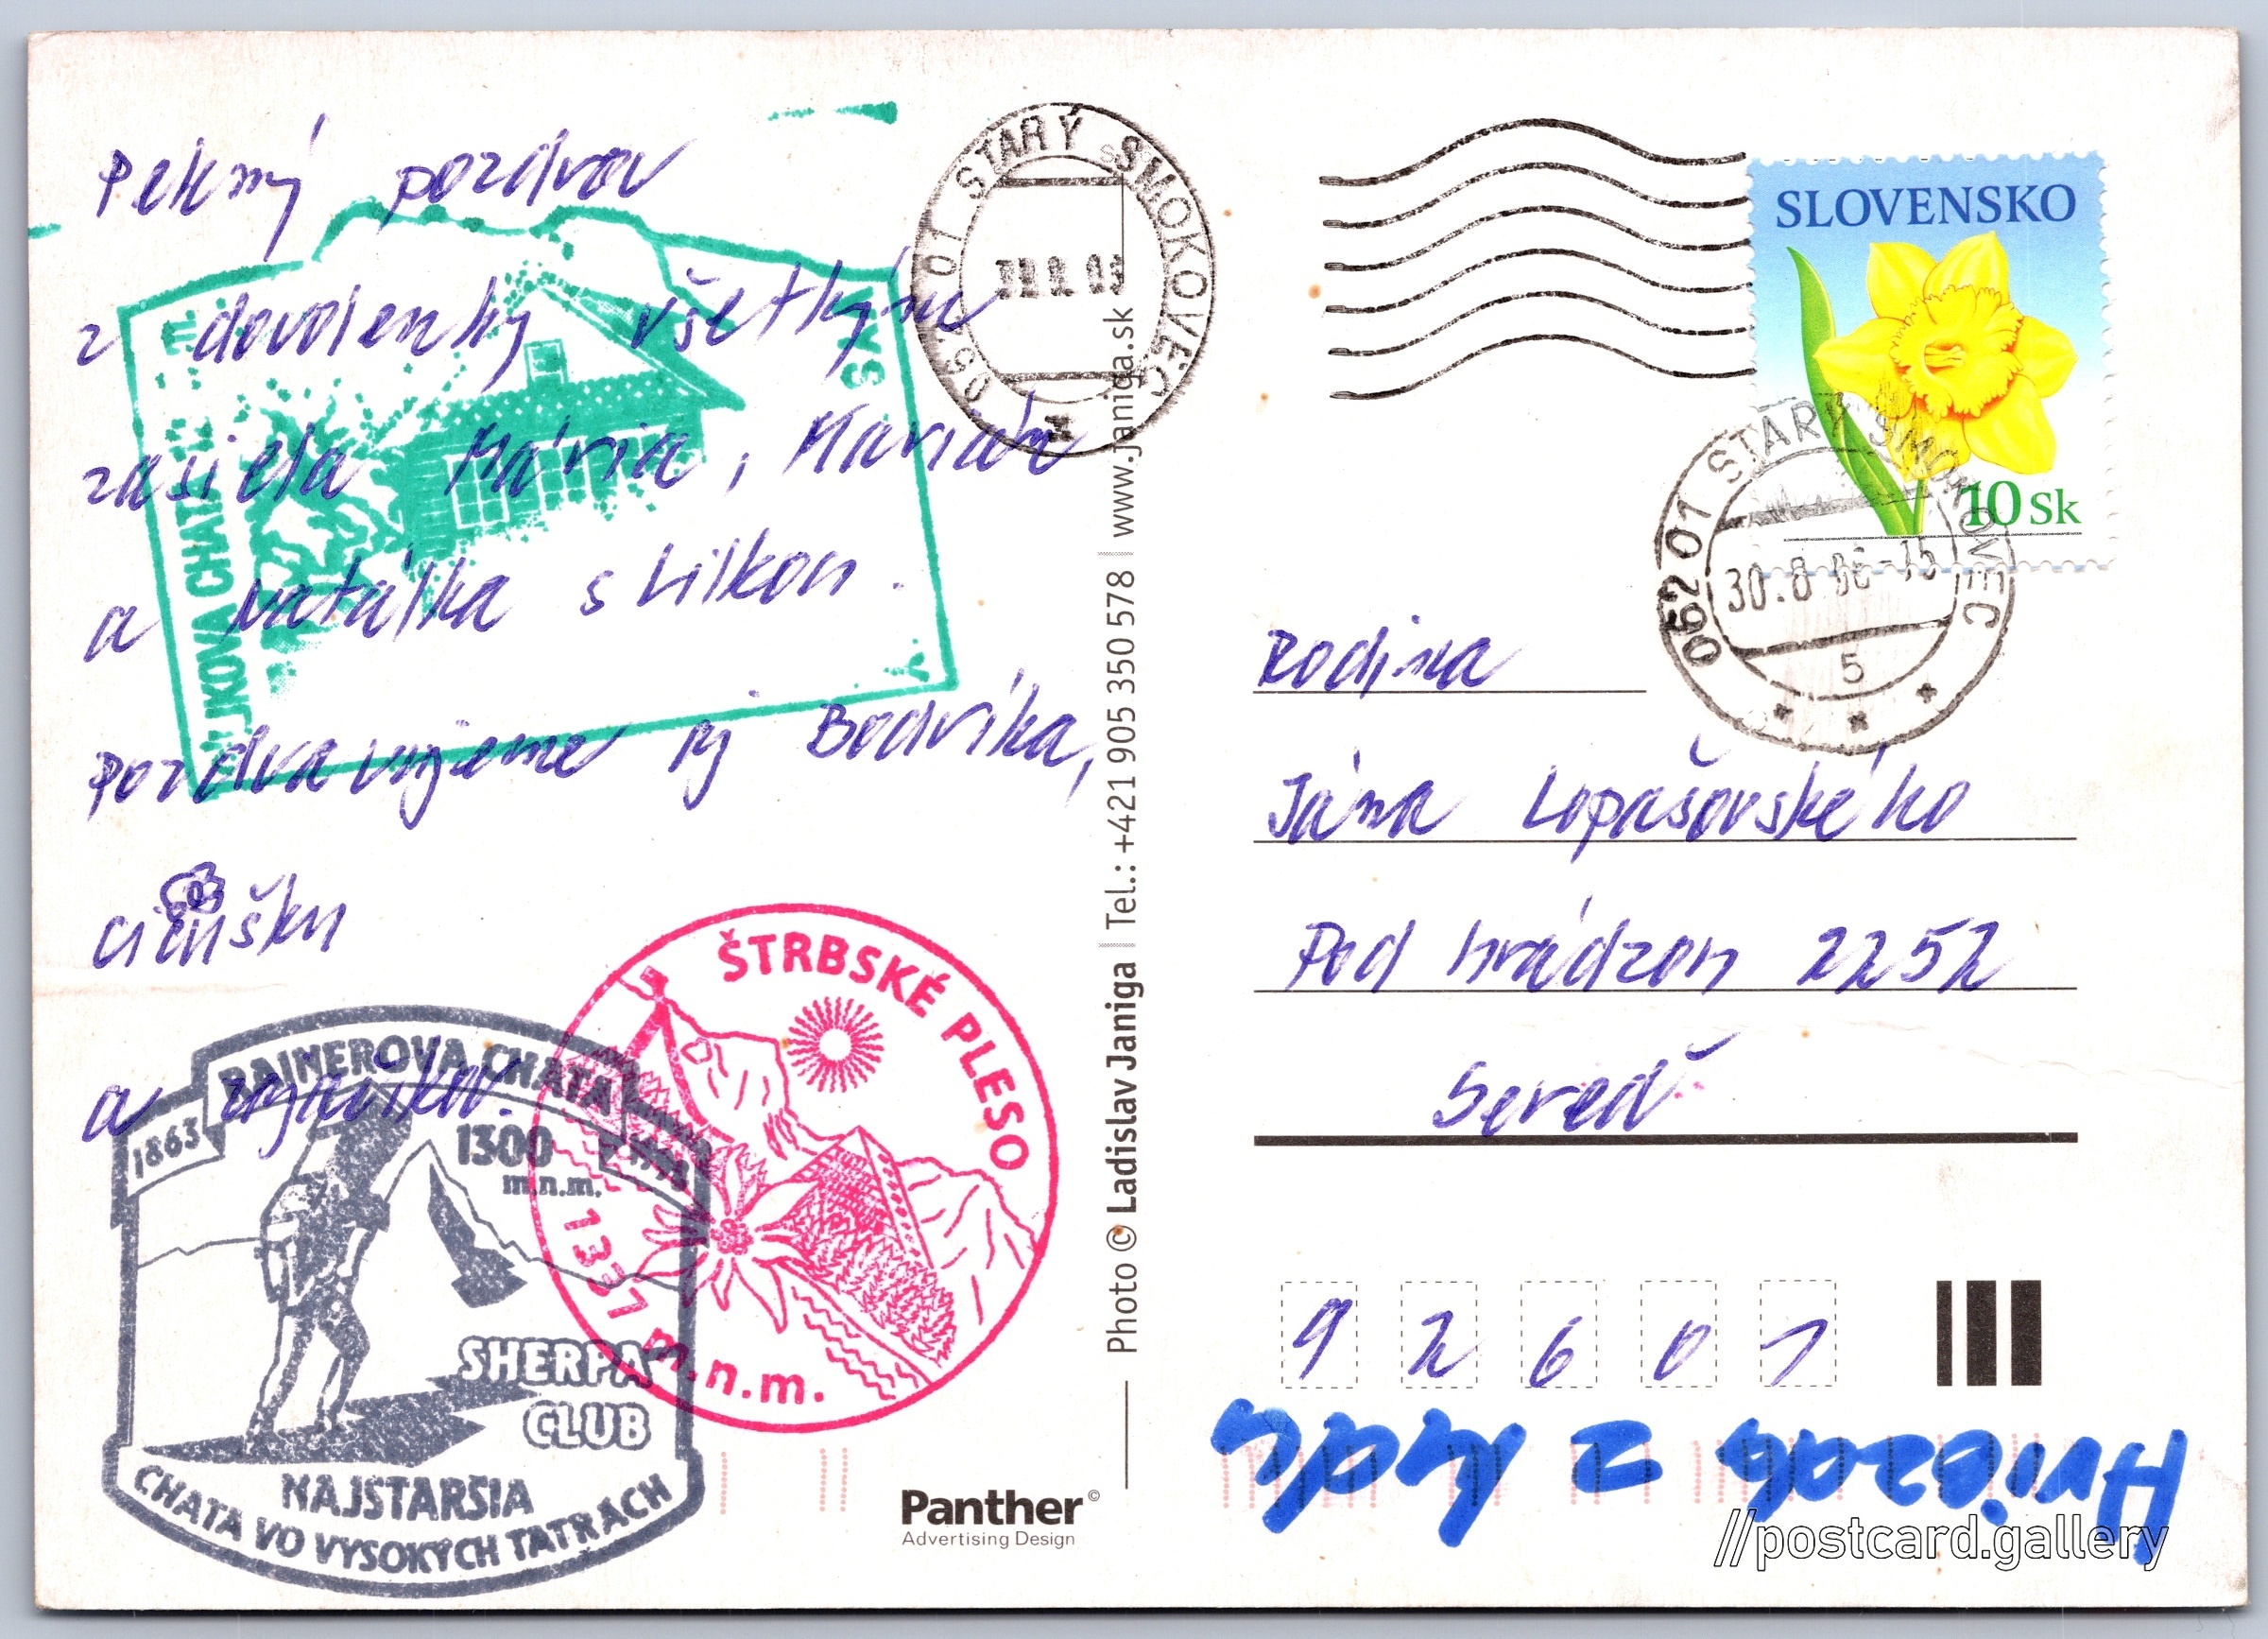 Pekný pozdrav
z dovolenky všetkým
zasiela Mária, Marián
a Natálka s Lilkou.
Pozdravujeme aj Bodríka,
a zajačikov.
BILÍKOVA CHATA
062 01 STARÝ SMOKOVEC
ŠTRBSKÉ PLESO
1337 m.n.m.
RAINEROVA CHATA
1863
1300
m.n.m.
SHERPA
CLUB
NAJSTARŠIA
CHATA VO VYSOKÝCH TATRÁCH
Photo © Ladislav Janiga | Tel.: +421 905 350 578 | www.janiga.sk
Panther©
Advertising Design
SLOVENSKO
10 Sk
062 01 STARÝ SMOKOVEC
30.8
5
Rodina
Jána Lopašovského
Pod hrádzou 2252
Sereď
9 2 6 0 1
Hviezda z
//postcard.gallery